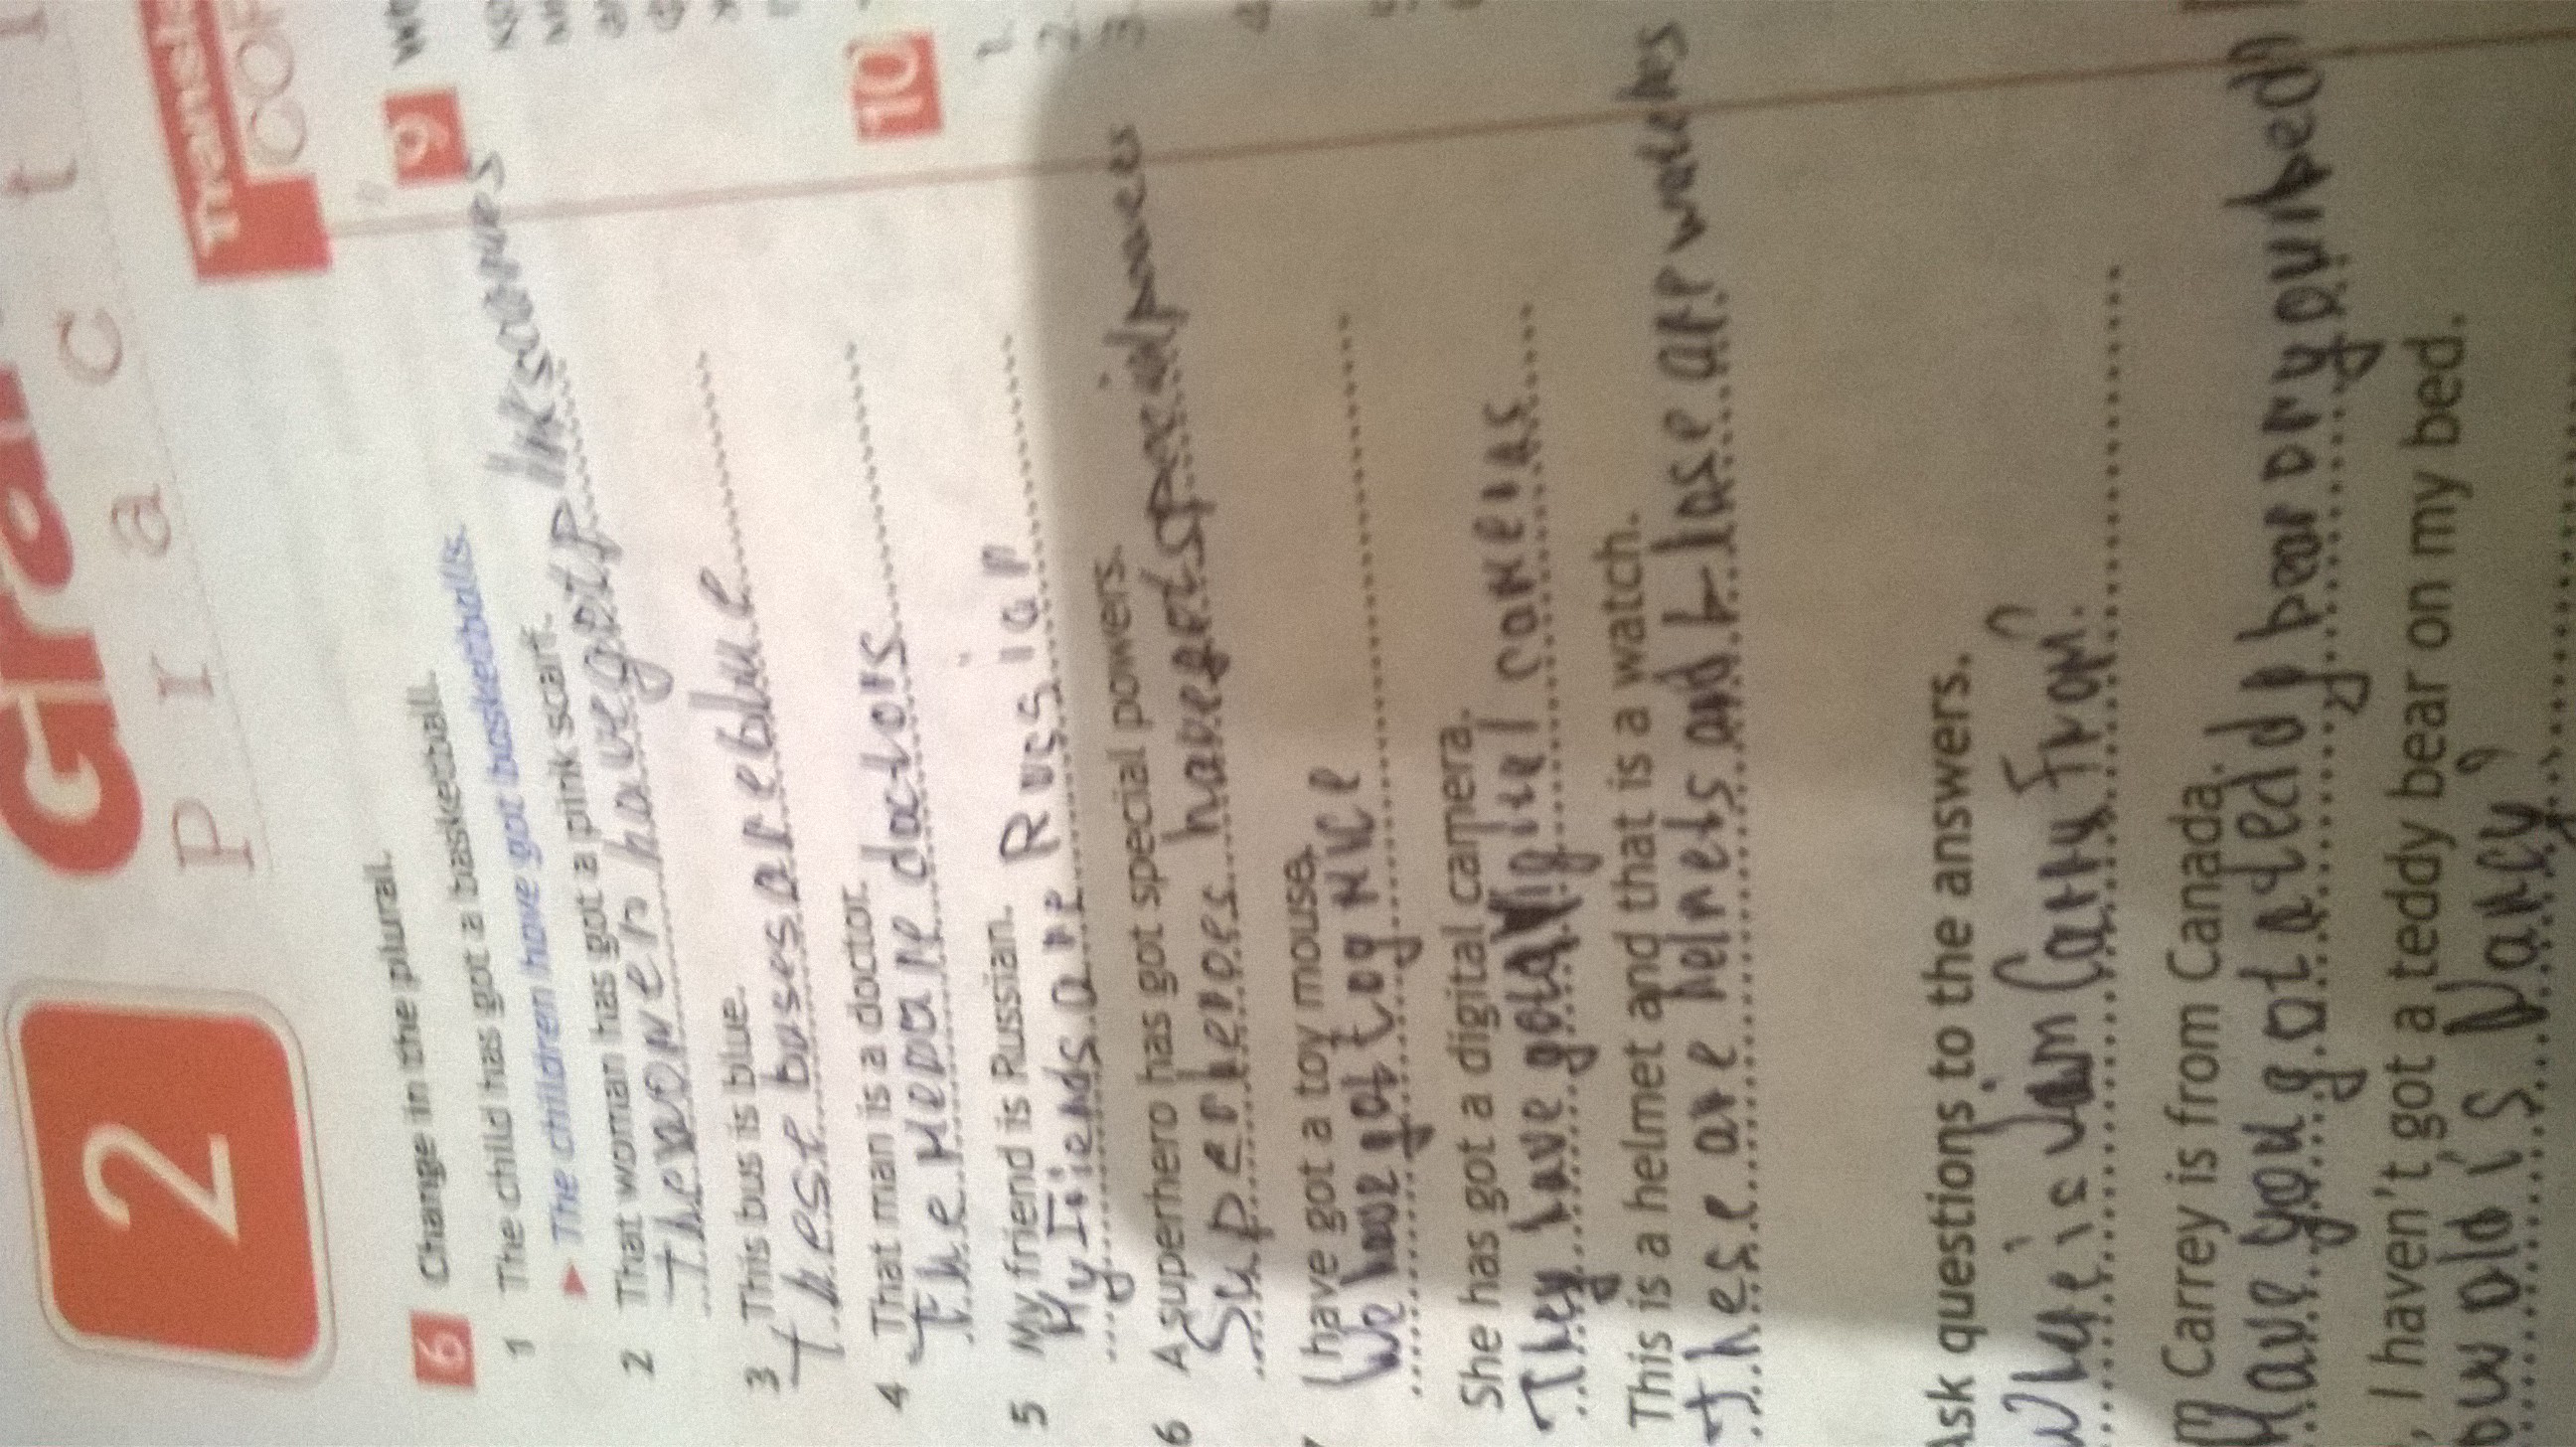 2
P r a c t
6 Change in the plural.
1 The child has got a basketball.
The children have got basketballs.
2 That woman has got a pink scarf.
3 This bus is blue.
these buses are blue
4 That man is a doctor.
the men are doctors
5 My friend is Russian.
My friends are Russian
6 A superhero has got special powers.
Superheroes have got special powers
I have got a toy mouse.
We have got toy mice
She has got a digital camera.
They have got digital cameras
This is a helmet and that is a watch.
these are helmets and those are watches
Ask questions to the answers.
Carrey is from Canada.
Have you got a teddy bear on your bed?
, I haven't got a teddy bear on my bed.
old is Nancy?
9
10
1.
2.
3.